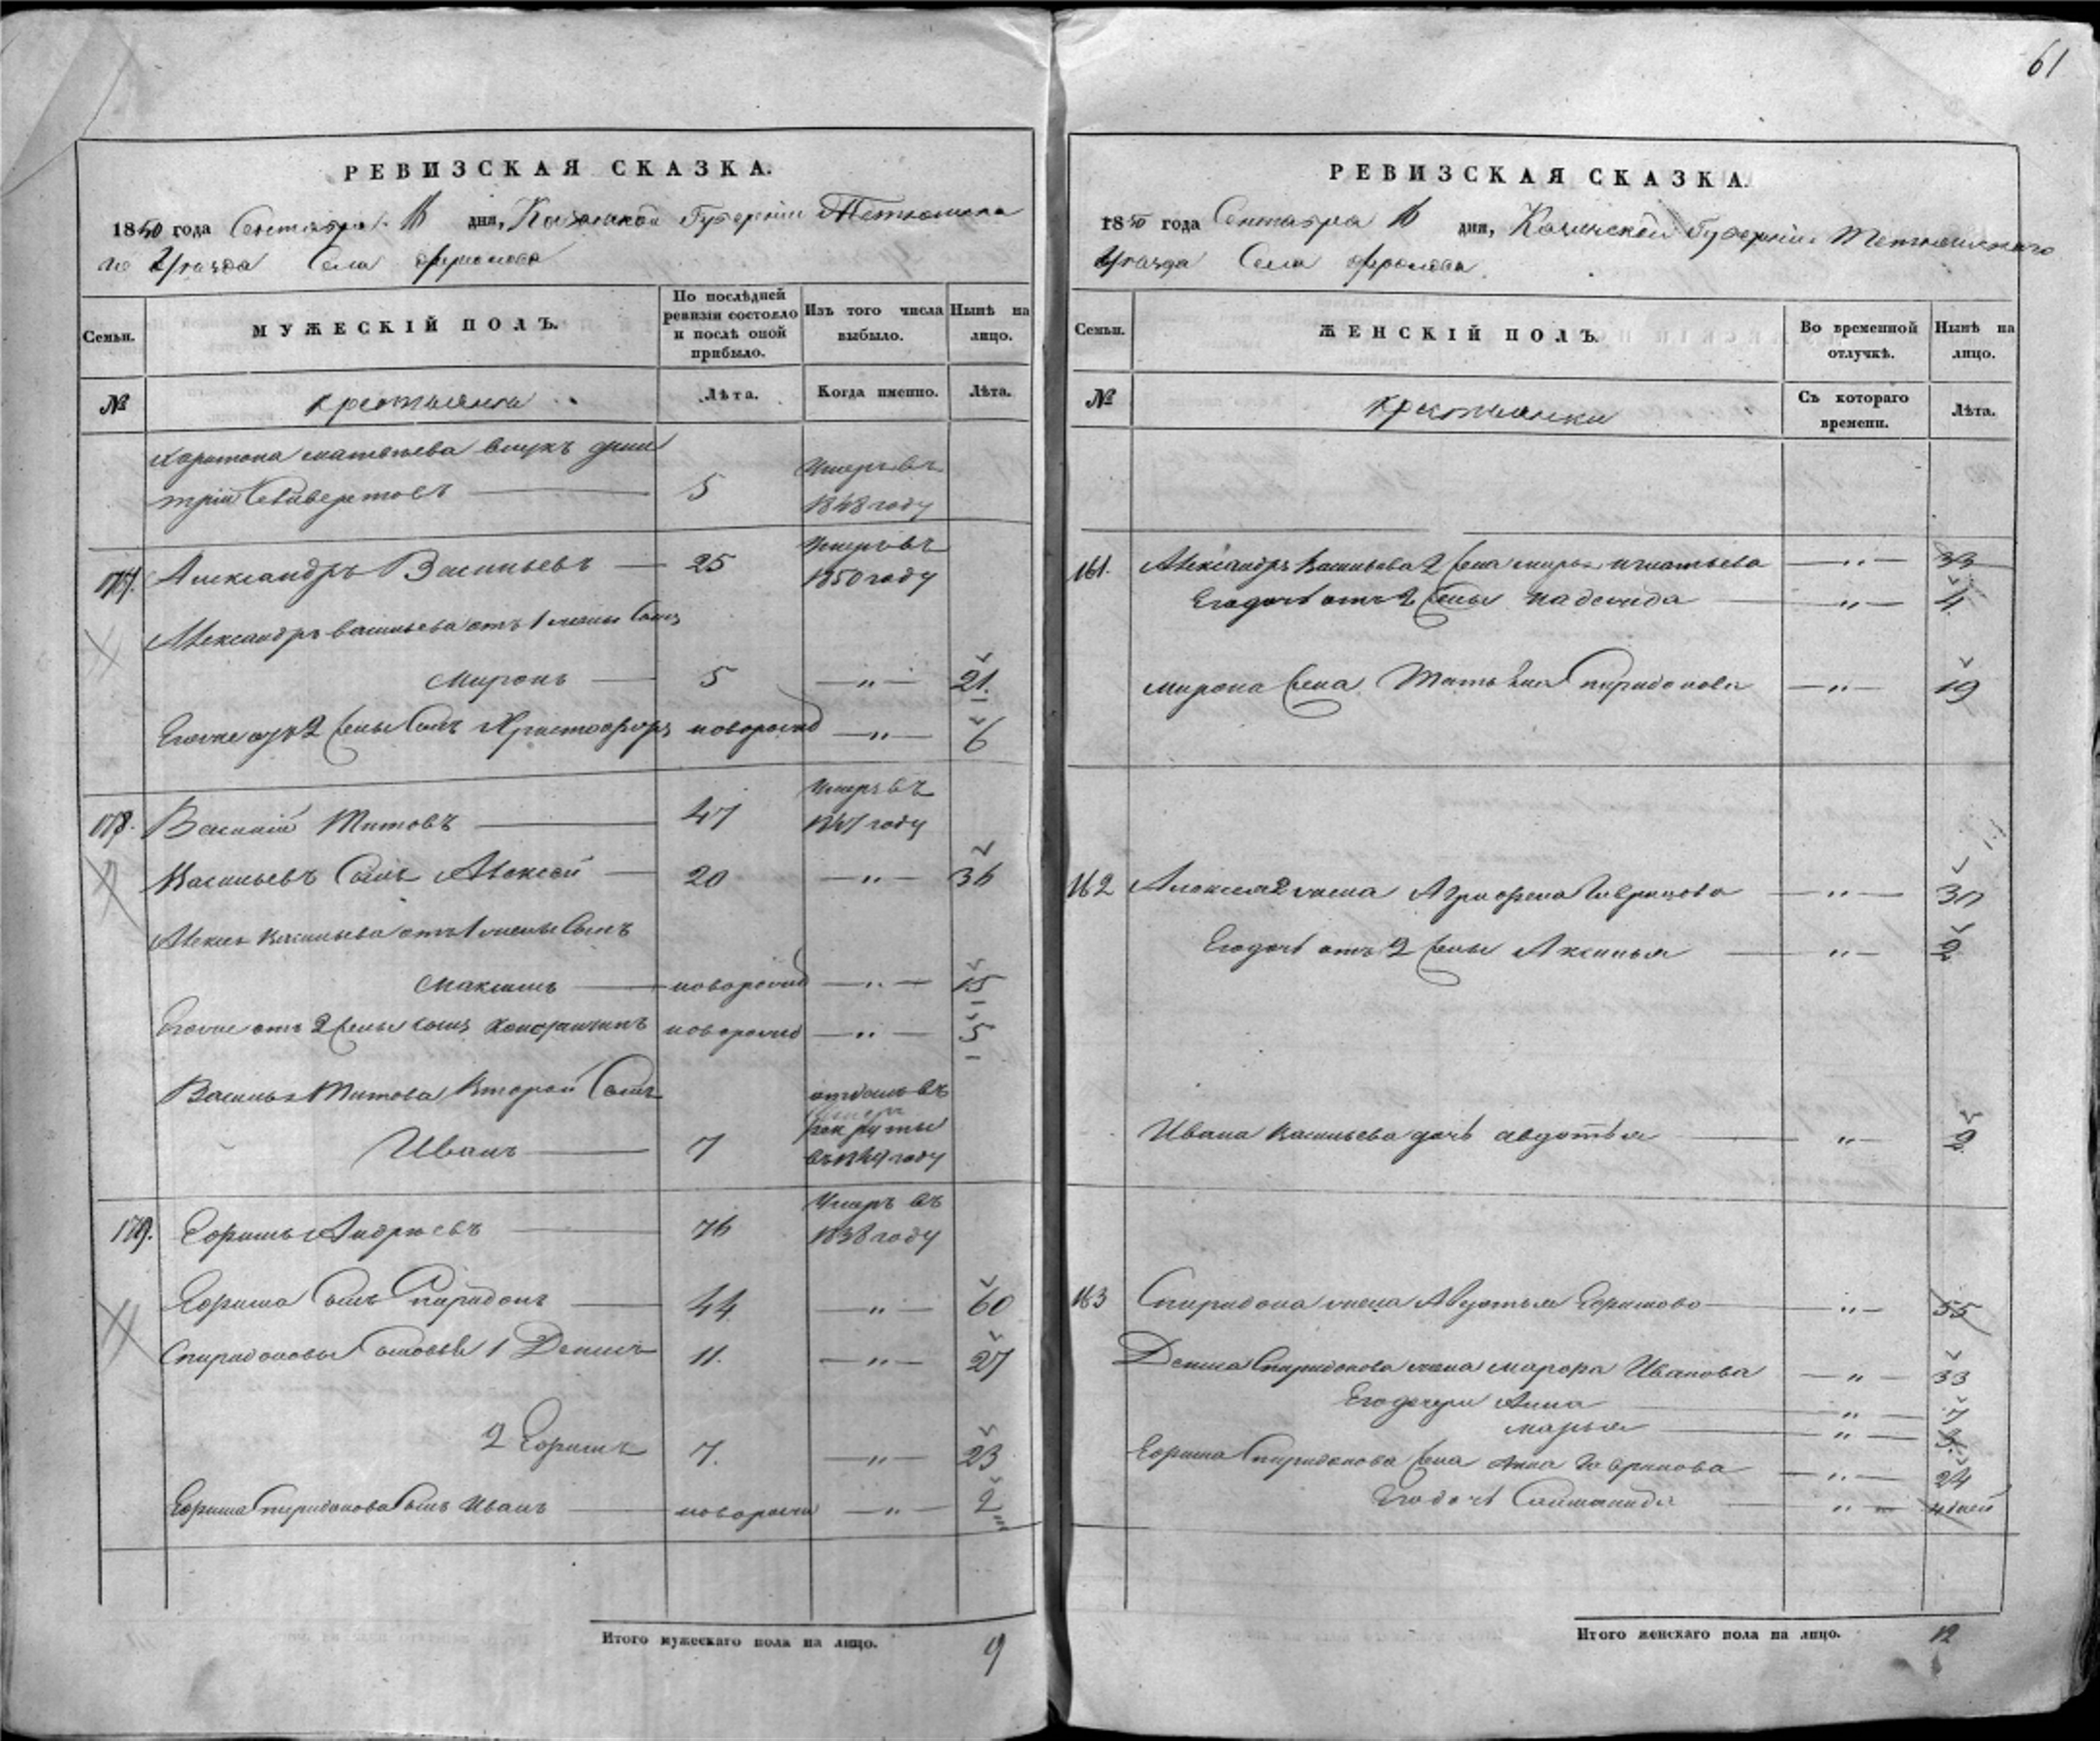 61
РЕВИЗСКАЯ СКАЗКА.
1850 года Сентября 16 дня, Казанской Губерніи Тетюшска
го Уезда Села Фролова
Семьи.
МУЖЕСКІЙ ПОЛЪ.
По послѣдней ревизіи состояло и послѣ оной прибыло.
Изъ того числа выбыло.
Нынѣ на лицо.
№
крестьяня
Лѣта.
Когда именно.
Лѣта.
Харитона Матвѣева внукъ Дми
трій Селивертовъ 5 Умеръ въ 1848 году
177. Александръ Васильевъ 25 Умеръ въ 1850 году
Александръ Васильева отъ 1 жены Сынъ
Миронъ 5 — " — 21.
Егоже отъ 2 жены Сынъ Христофоръ новорожд — " — 6
178. Василій Титовъ 47 Умеръ въ 1847 году
Васильевъ Сынъ Алексей 20 — " — 36
Алексея Васильева отъ 1 жены Сынъ
Максимъ новорожд — " — 15
Егоже отъ 2 жены сынъ Константинъ новорожд — " — 5
Василья Титова Второй Сынъ
Иванъ 7 отданъ въ рекруты въ 1849 году
179. Ефимъ Андреевъ 76 Умеръ въ 1838 году
Ефима Сынъ Спиридонъ 44 — " — 60
Спиридоновы Сыновья 1 Денисъ 11. — " — 27
2 Ефимъ 7. — " — 23
Ефима Спиридонова Сынъ Иванъ новорожд — " — 2
Итого мужескаго пола на лицо. 9
РЕВИЗСКАЯ СКАЗКА.
1850 года Сентября 16 дня, Казанской Губерніи Тетюшскаго
Уезда Села Фролова
Семьи.
ЖЕНСКІЙ ПОЛЪ.
Во временной отлучкѣ.
Нынѣ на лицо.
№
крестьянки
Съ котораго времени.
Лѣта.
161. Александръ Васильева 2 жена Марья Игнатьева — " — 33
Егодочь отъ 2 жены Надежда — " — 4
Мирона жена Татьяна Спиридонова — " — 19
162 Алексея 2 жена Аграфена Гаврилова — " — 30
Егодочь отъ 2 жены Аксинья — " — 2
Ивана Васильева дочь Авдотья " — 2
163 Спиридона жена Авдотья Ефимова " — 55
Дениса Спиридонова жена Марфа Иванова — " — 33
Егодочери Анна " — 7
Марья " — 3
Ефима Спиридонова жена Анна Гаврилова — " — 24
Егодочь Соломонида " — 4 дней
Итого женскаго пола на лицо. 12